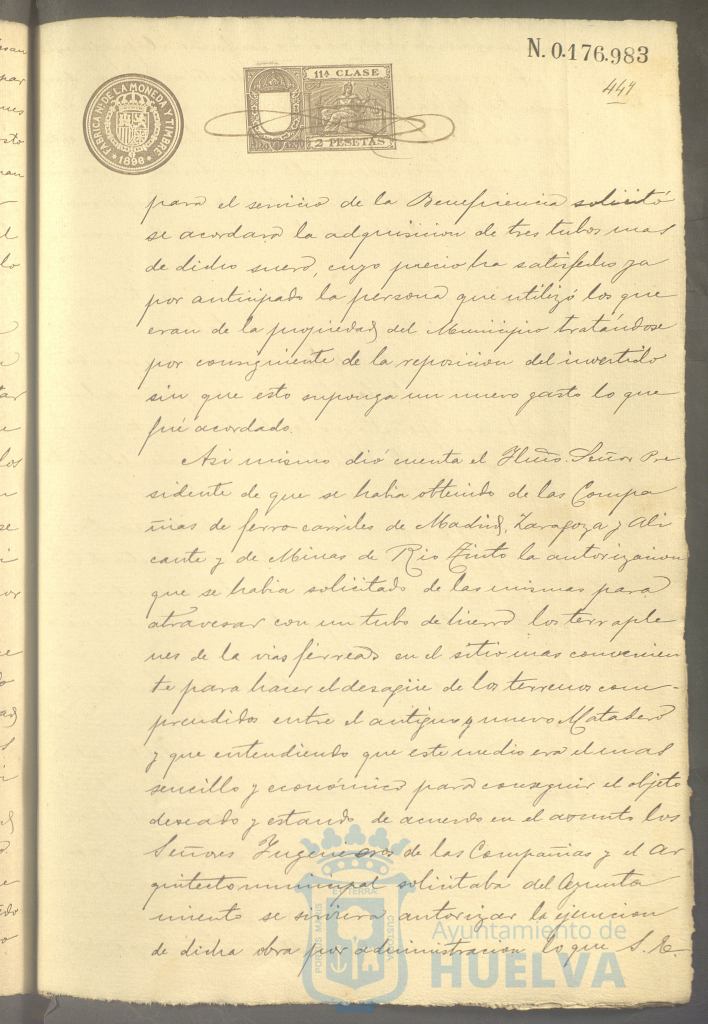 N. 0.176.983
449
FABRICA N. DE LA MONEDA Y TIMBRE
1896
11ª CLASE
2 PESETAS
para el servicio de la Beneficencia solicitó
se acordara la adquisicion de tres tubos mas
de dicho suero, cuyo precio ha satisfecho ya
por anticipado la persona que utilizó los que
eran de la propiedad del Municipio tratándose
por consiguiente de la reposicion del invertido
sin que esto suponga un nuevo gasto lo que
fué acordado.
Asi mismo dió cuenta el Iltmo. Señor Pre
sidente de que se habia obtenido de las Compa
ñias de ferro-carriles de Madrid, Zaragoza y Ali
cante y de Minas de Rio Tinto la autorizacion
que se habia solicitado de las mismas para
atravesar con un tubo de hierro los terraple
nes de la vias férreas en el sitio mas convenien
te para hacer el desagüe de los terrenos com-
prendidos entre el antiguo y nuevo Matadero
y que entendiendo que este medio era el mas
sencillo y económico para conseguir el objeto
deseado y estando de acuerdo en el asunto los
Señores Ingenieros de las Compañias y el Ar
quitecto municipal solicitaba del Ayunta
miento se sirviera autorizar la ejecucion
de dicha obra por administracion lo que S. E.
PORTUS MARIS
ET TERRAE
CUSTODIA
Ayuntamiento de
HUELVA